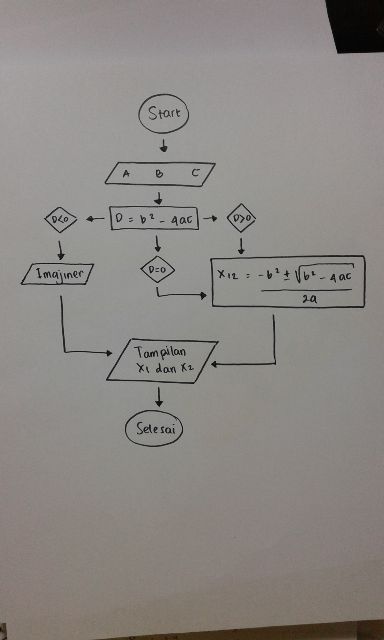 Start
A B C
D<0
D = b² - 4ac
D>0
Imajiner
D=0
X12 = -b² ± √b² - 4ac
2a
Tampilan
X1 dan X2
Selesai